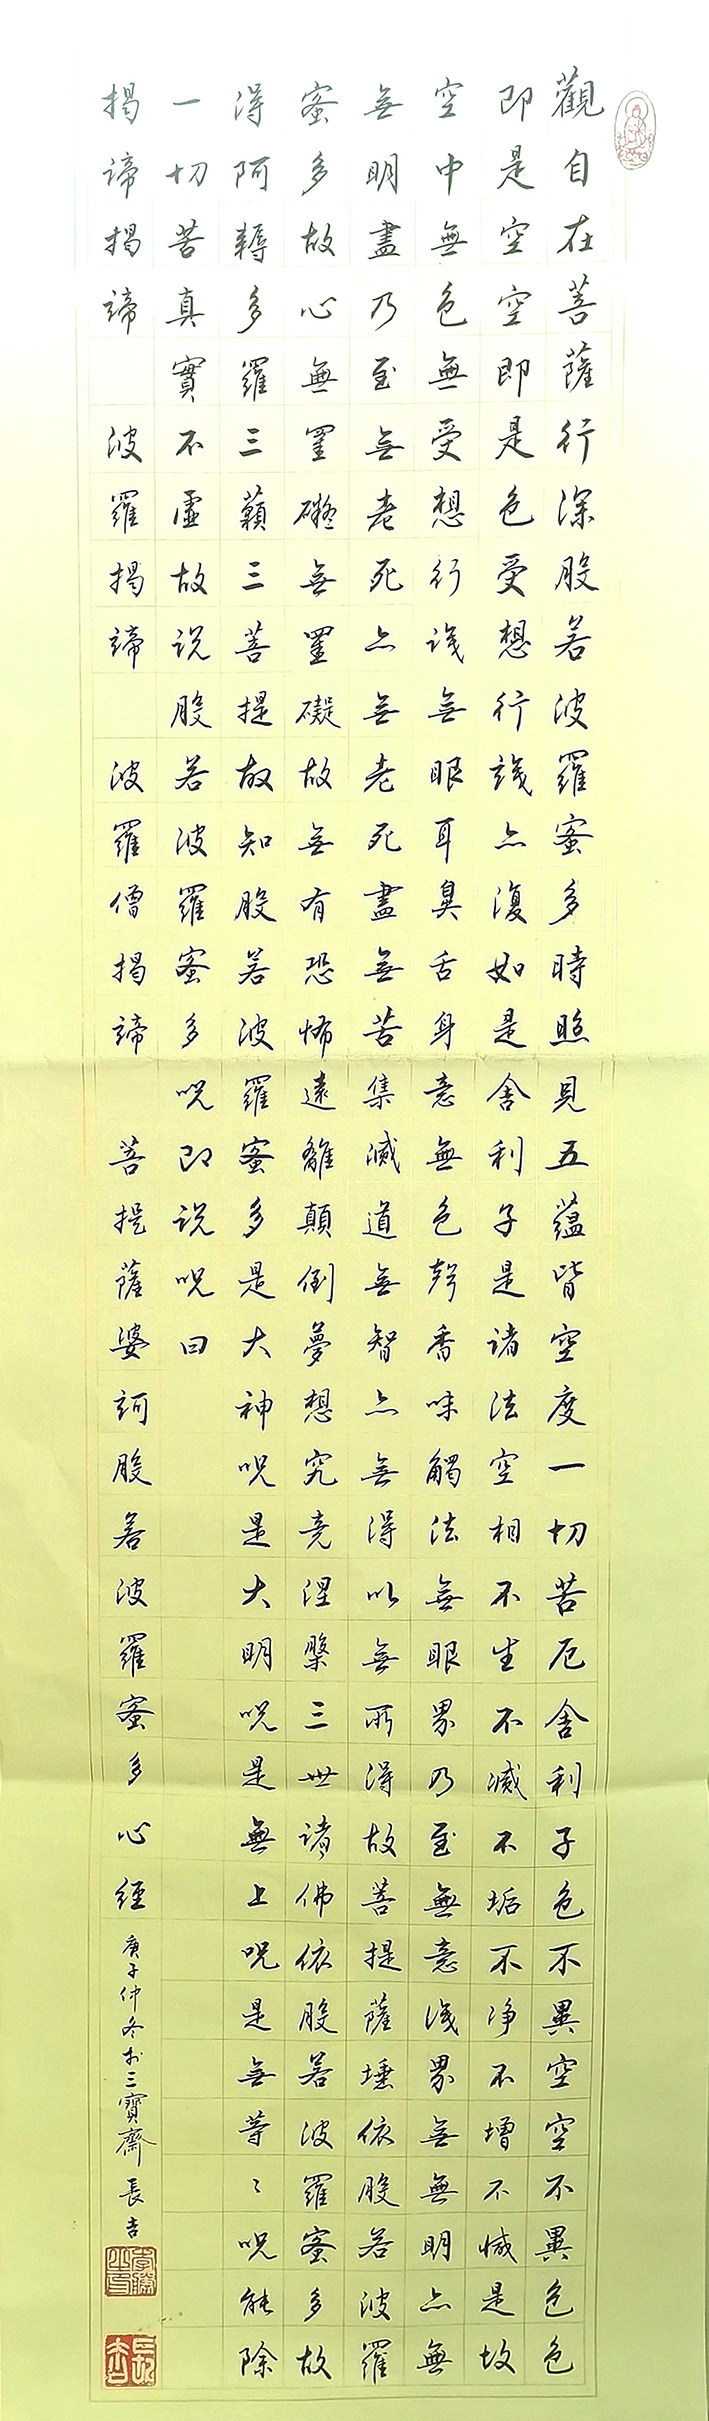 觀自在菩薩行深般若波羅蜜多時照見五蘊皆空度一切苦厄舍利子色不異空空不異色色
即是空空即是色受想行識亦復如是舍利子是諸法空相不生不滅不垢不淨不增不減是故
空中無色無受想行識無眼耳鼻舌身意無色聲香味觸法無眼界乃至無意識界無無明亦無
無明盡乃至無老死亦無老死盡無苦集滅道無智亦無得以無所得故菩提薩埵依般若波羅
蜜多故心無罣礙無罣礙故無有恐怖遠離顛倒夢想究竟涅槃三世諸佛依般若波羅蜜多故
得阿耨多羅三藐三菩提故知般若波羅蜜多是大神呪是大明呪是無上呪是無等〻呪能除
一切苦真實不虛故説般若波羅蜜多呪即説呪曰
揭諦揭諦 波羅揭諦 波羅僧揭諦 菩提薩婆訶般若波羅蜜多 心經 庚子仲冬於三寶齋 長吉
長吉